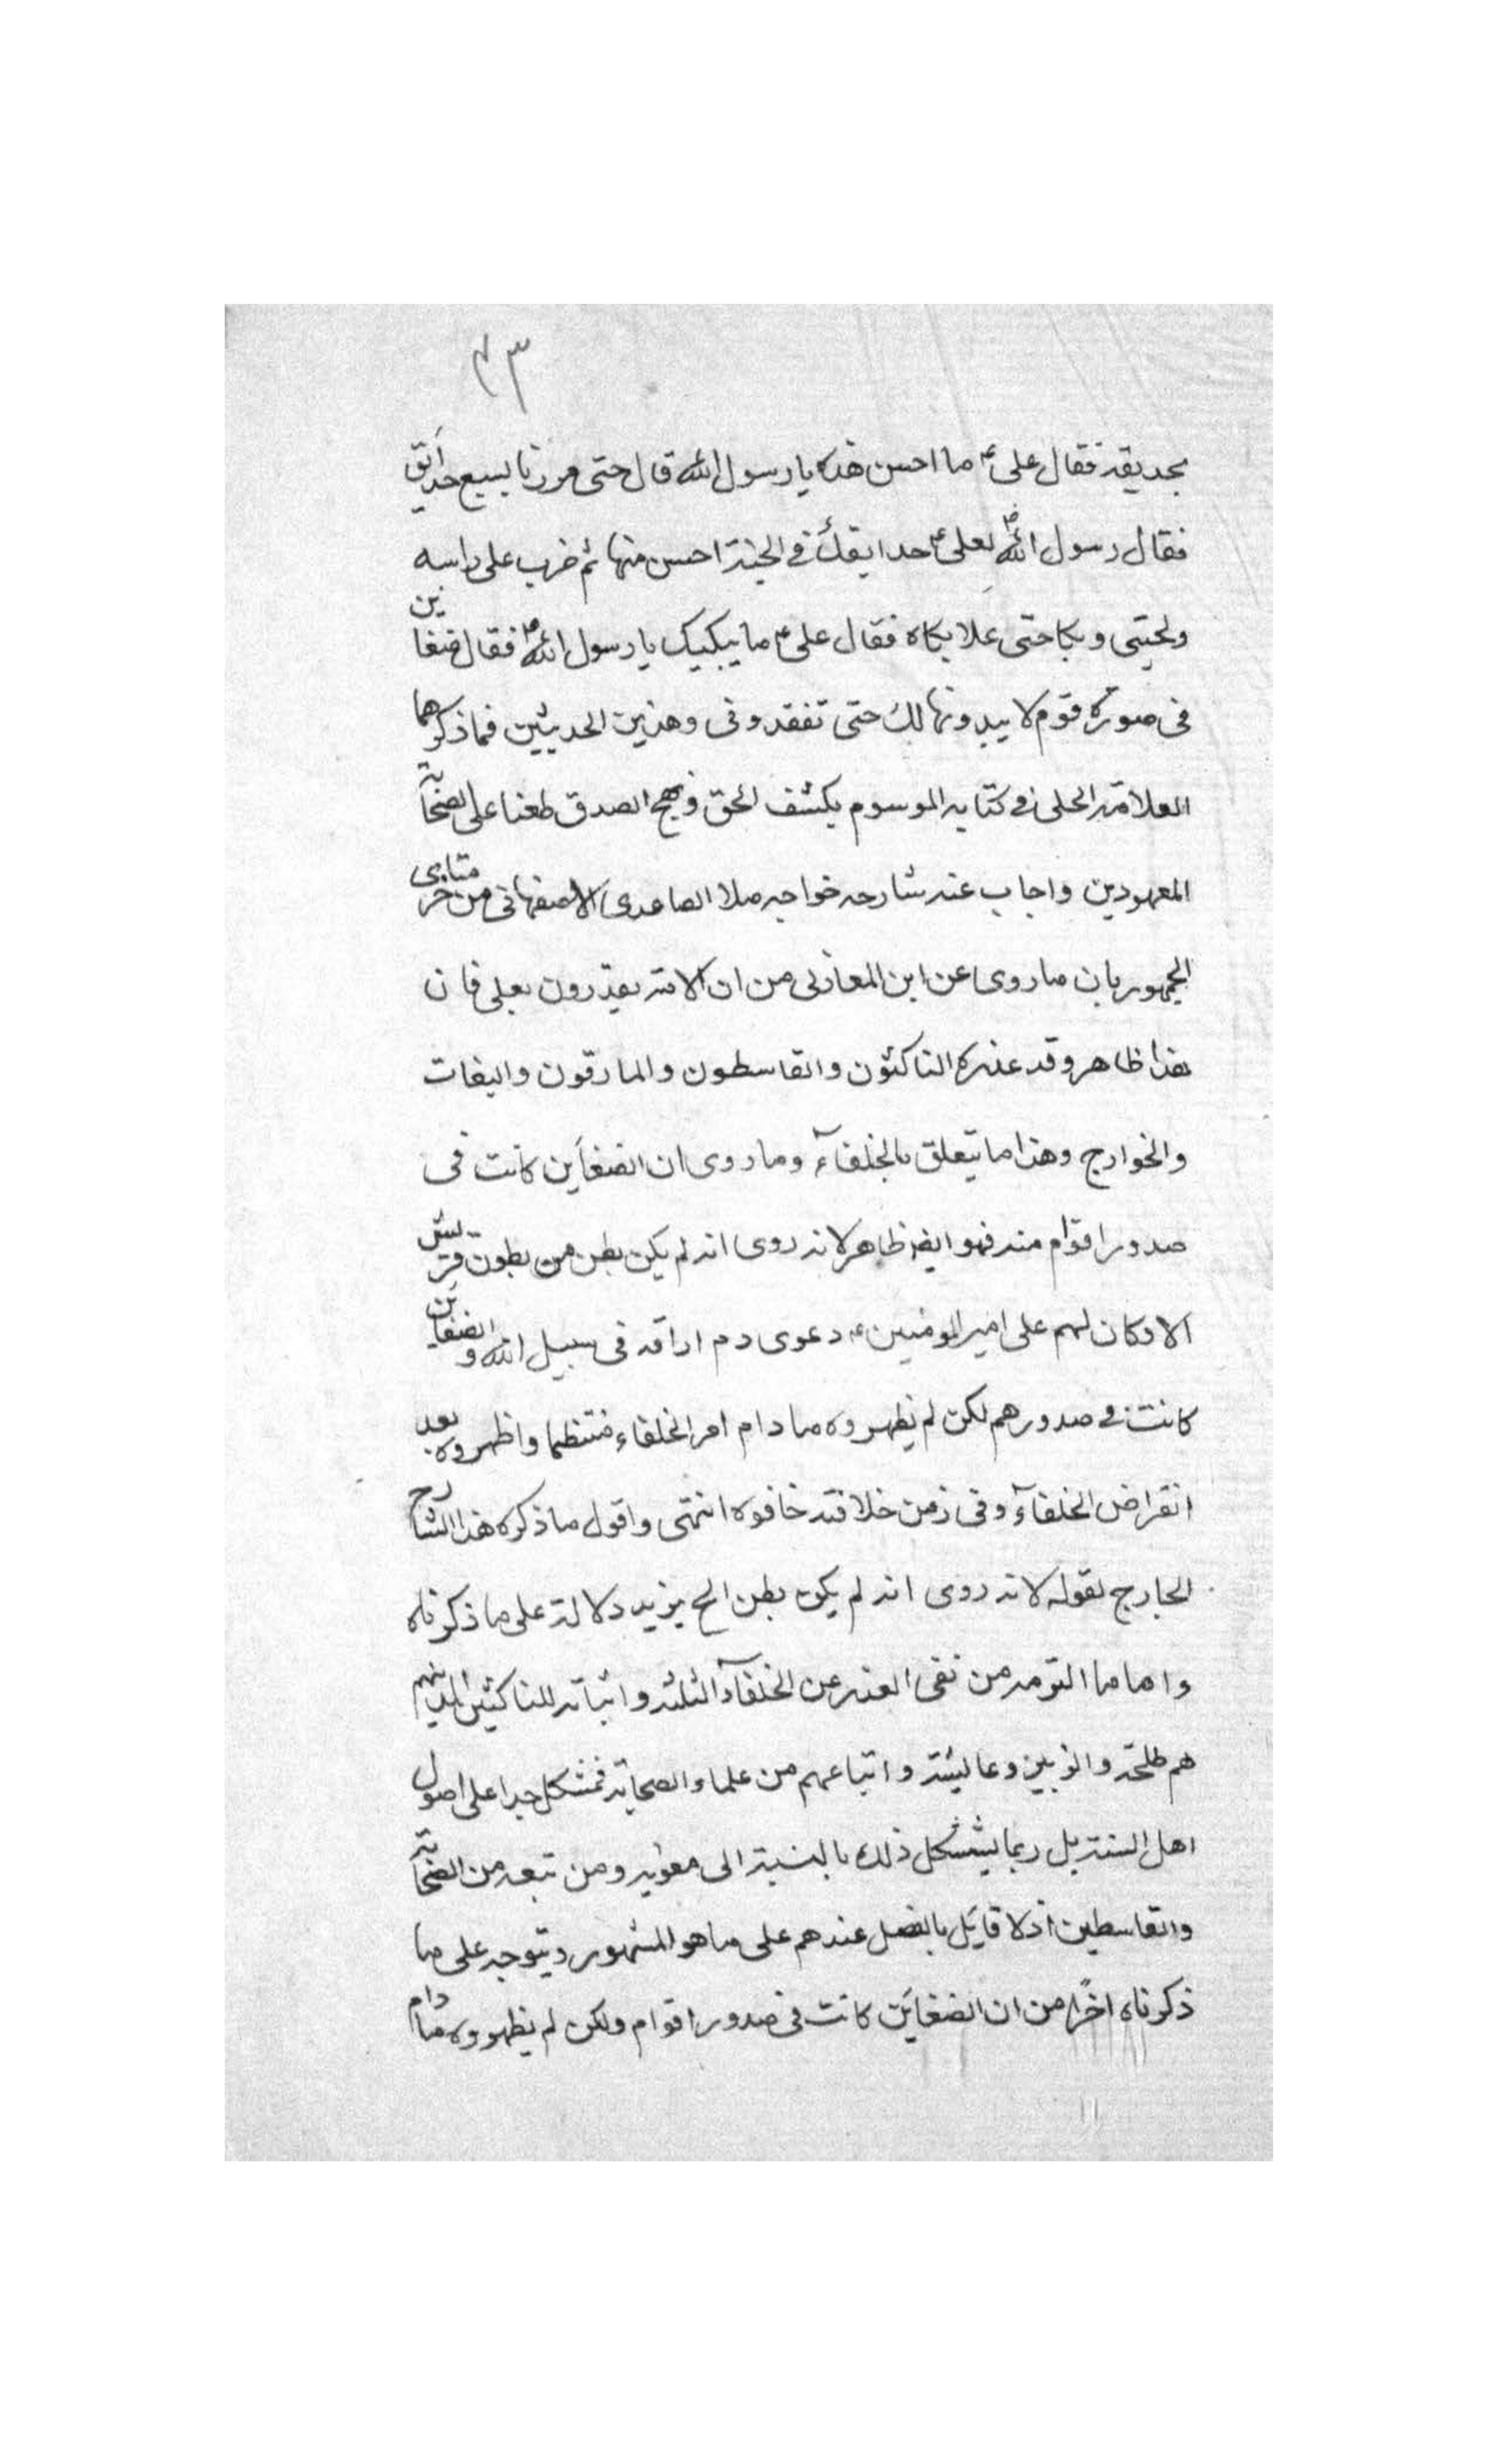 ٤٣
بحديقة فقال على ع ما احسن هذه يا رسول الله قال حتى مررنا بسبع حدايق
فقال رسول الله ص لعلى ع حدايقك فى الجنة احسن منها ثم ضرب على راسه
ولحيتى وبكا حتى علا بكاه فقال على ع ما يبكيك يا رسول الله ص فقال ضغاين
فى صدور قوم لا يبدونها لك حتى تفقدونى وهذين الحديثين فما ذكرهما
العلامة الحلى فى كتابه الموسوم بكشف الحق ونهج الصدق طعنا على الصحابة
المعهودين واجاب عنه شارحه خواجه ملا الصاعدى الاصفهانى من متاخرى
الجمهور بان ما روى عن ابن المغازلى من ان الامة يغدرون بعلى فان
هذا ظاهر وقد غدره الناكثون والقاسطون والمارقون والبغات
والخوارج وهذا ما يتعلق بالخلفآء وما روى ان الضغاين كانت فى
صدور اقوام منه فهو ايضا ظاهر لانه روى انه لم يكن بطن من بطون قريش
الا وكان لهم على امير المومنين ع دعوى دم اراقه فى سبيل الله والضغاين
كانت فى صدورهم لكن لم يظهروه ما دام امر الخلفاء منتظما واظهروه بعد
انقراض الخلفآء وفى زمن خلافته خافوه انتهى واقول ما ذكره هذا الشارح
الجارح بقوله لانه روى انه لم يكن بطن الخ يزيد دلالة على ما ذكرناه
واما ما التزمه من نفى الغدر عن الخلفآء الثلثة واثباته للناكثين الذين
هم طلحة والزبير وعايشة واتباعهم من علماء الصحابة فمشكل جدا على اصول
اهل السنة بل ربما يستشكل ذلك بالنسبة الى معوية ومن تبعه من الصحابة
والقاسطين اذ لا قايل بالفصل عندهم على ما هو المشهور ويتوجه على ما
ذكرناه اخرا من ان الضغاين كانت فى صدور اقوام ولكن لم يظهروه ما دام